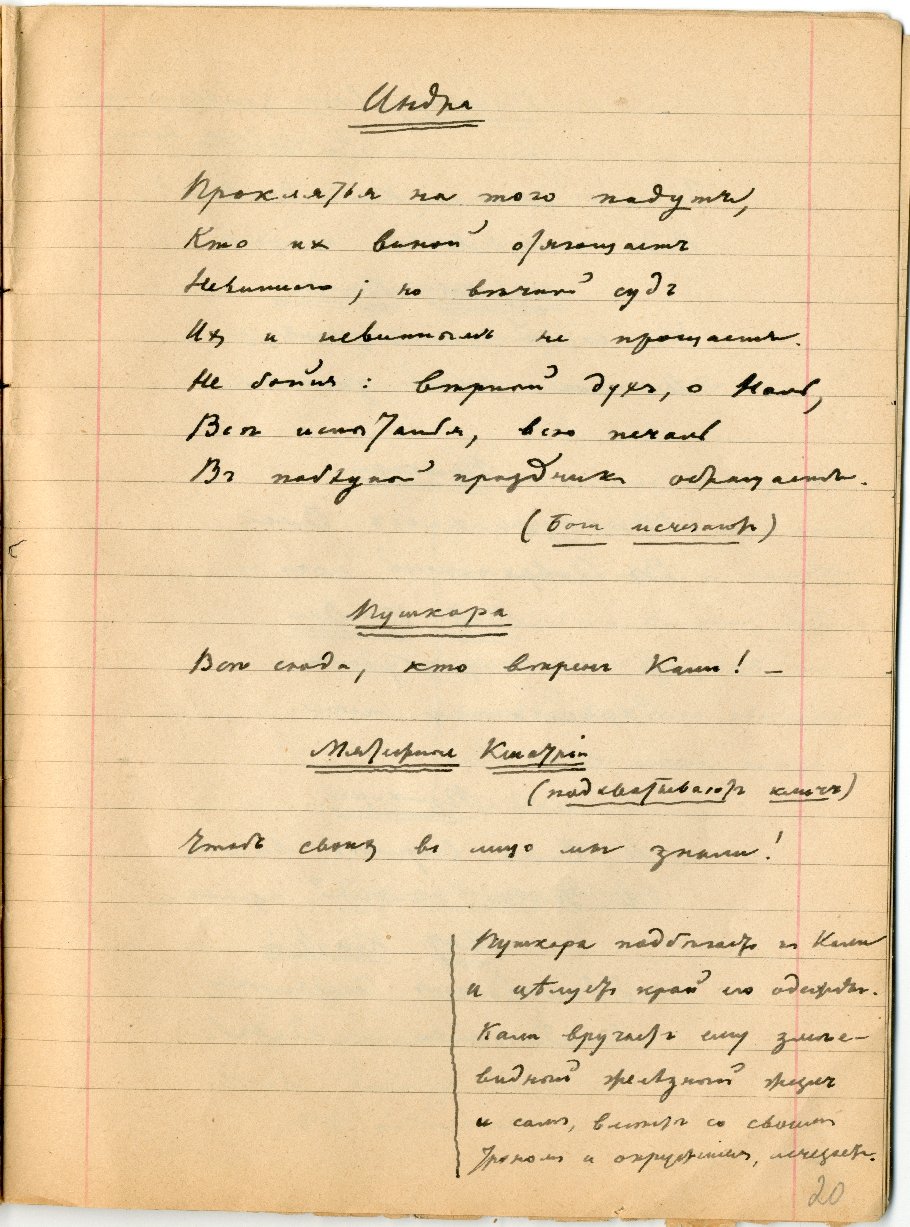 Индра
Проклятья на того падутъ,
Кто ихъ виной отягощаетъ
Невиннаго; но вѣчный судъ
Ихъ и невиннымъ не прощаетъ.
Не бойся: вѣрный духъ, о Наль,
Всѣ испытанья, всю печаль
Въ побѣдный праздникъ обращаетъ.
(Боги исчезаютъ)
Пушкара
Всѣ сюда, кто вѣренъ Кали! —
Мятежные Кшатріи
(подхватываютъ кличъ)
Чтобъ своихъ въ лицо мы знали!
Пушкара подбѣгаетъ къ Кали
и цѣлуетъ край его одежды.
Кали вручаетъ ему змѣе-
видный желѣзный жезлъ
и самъ, вмѣстѣ со своимъ
трономъ и окруженіемъ, исчезаетъ.
20